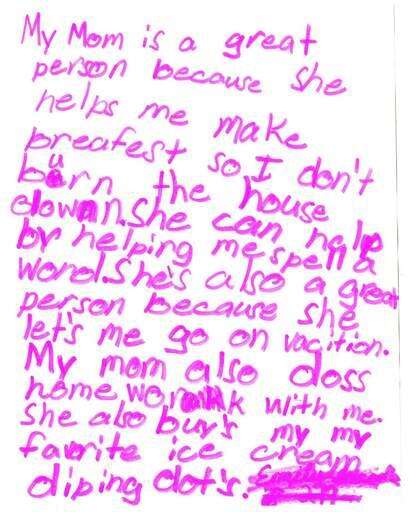 My Mom is a great
person because she
helps me make
breafest so I don't
burn the house
down. She can help
by helping me spell a
word. She's also a great
person because she
let's me go on vacition.
My mom also doss
home work with me.
she also buy's my my
favorite ice cream
diping dot's.